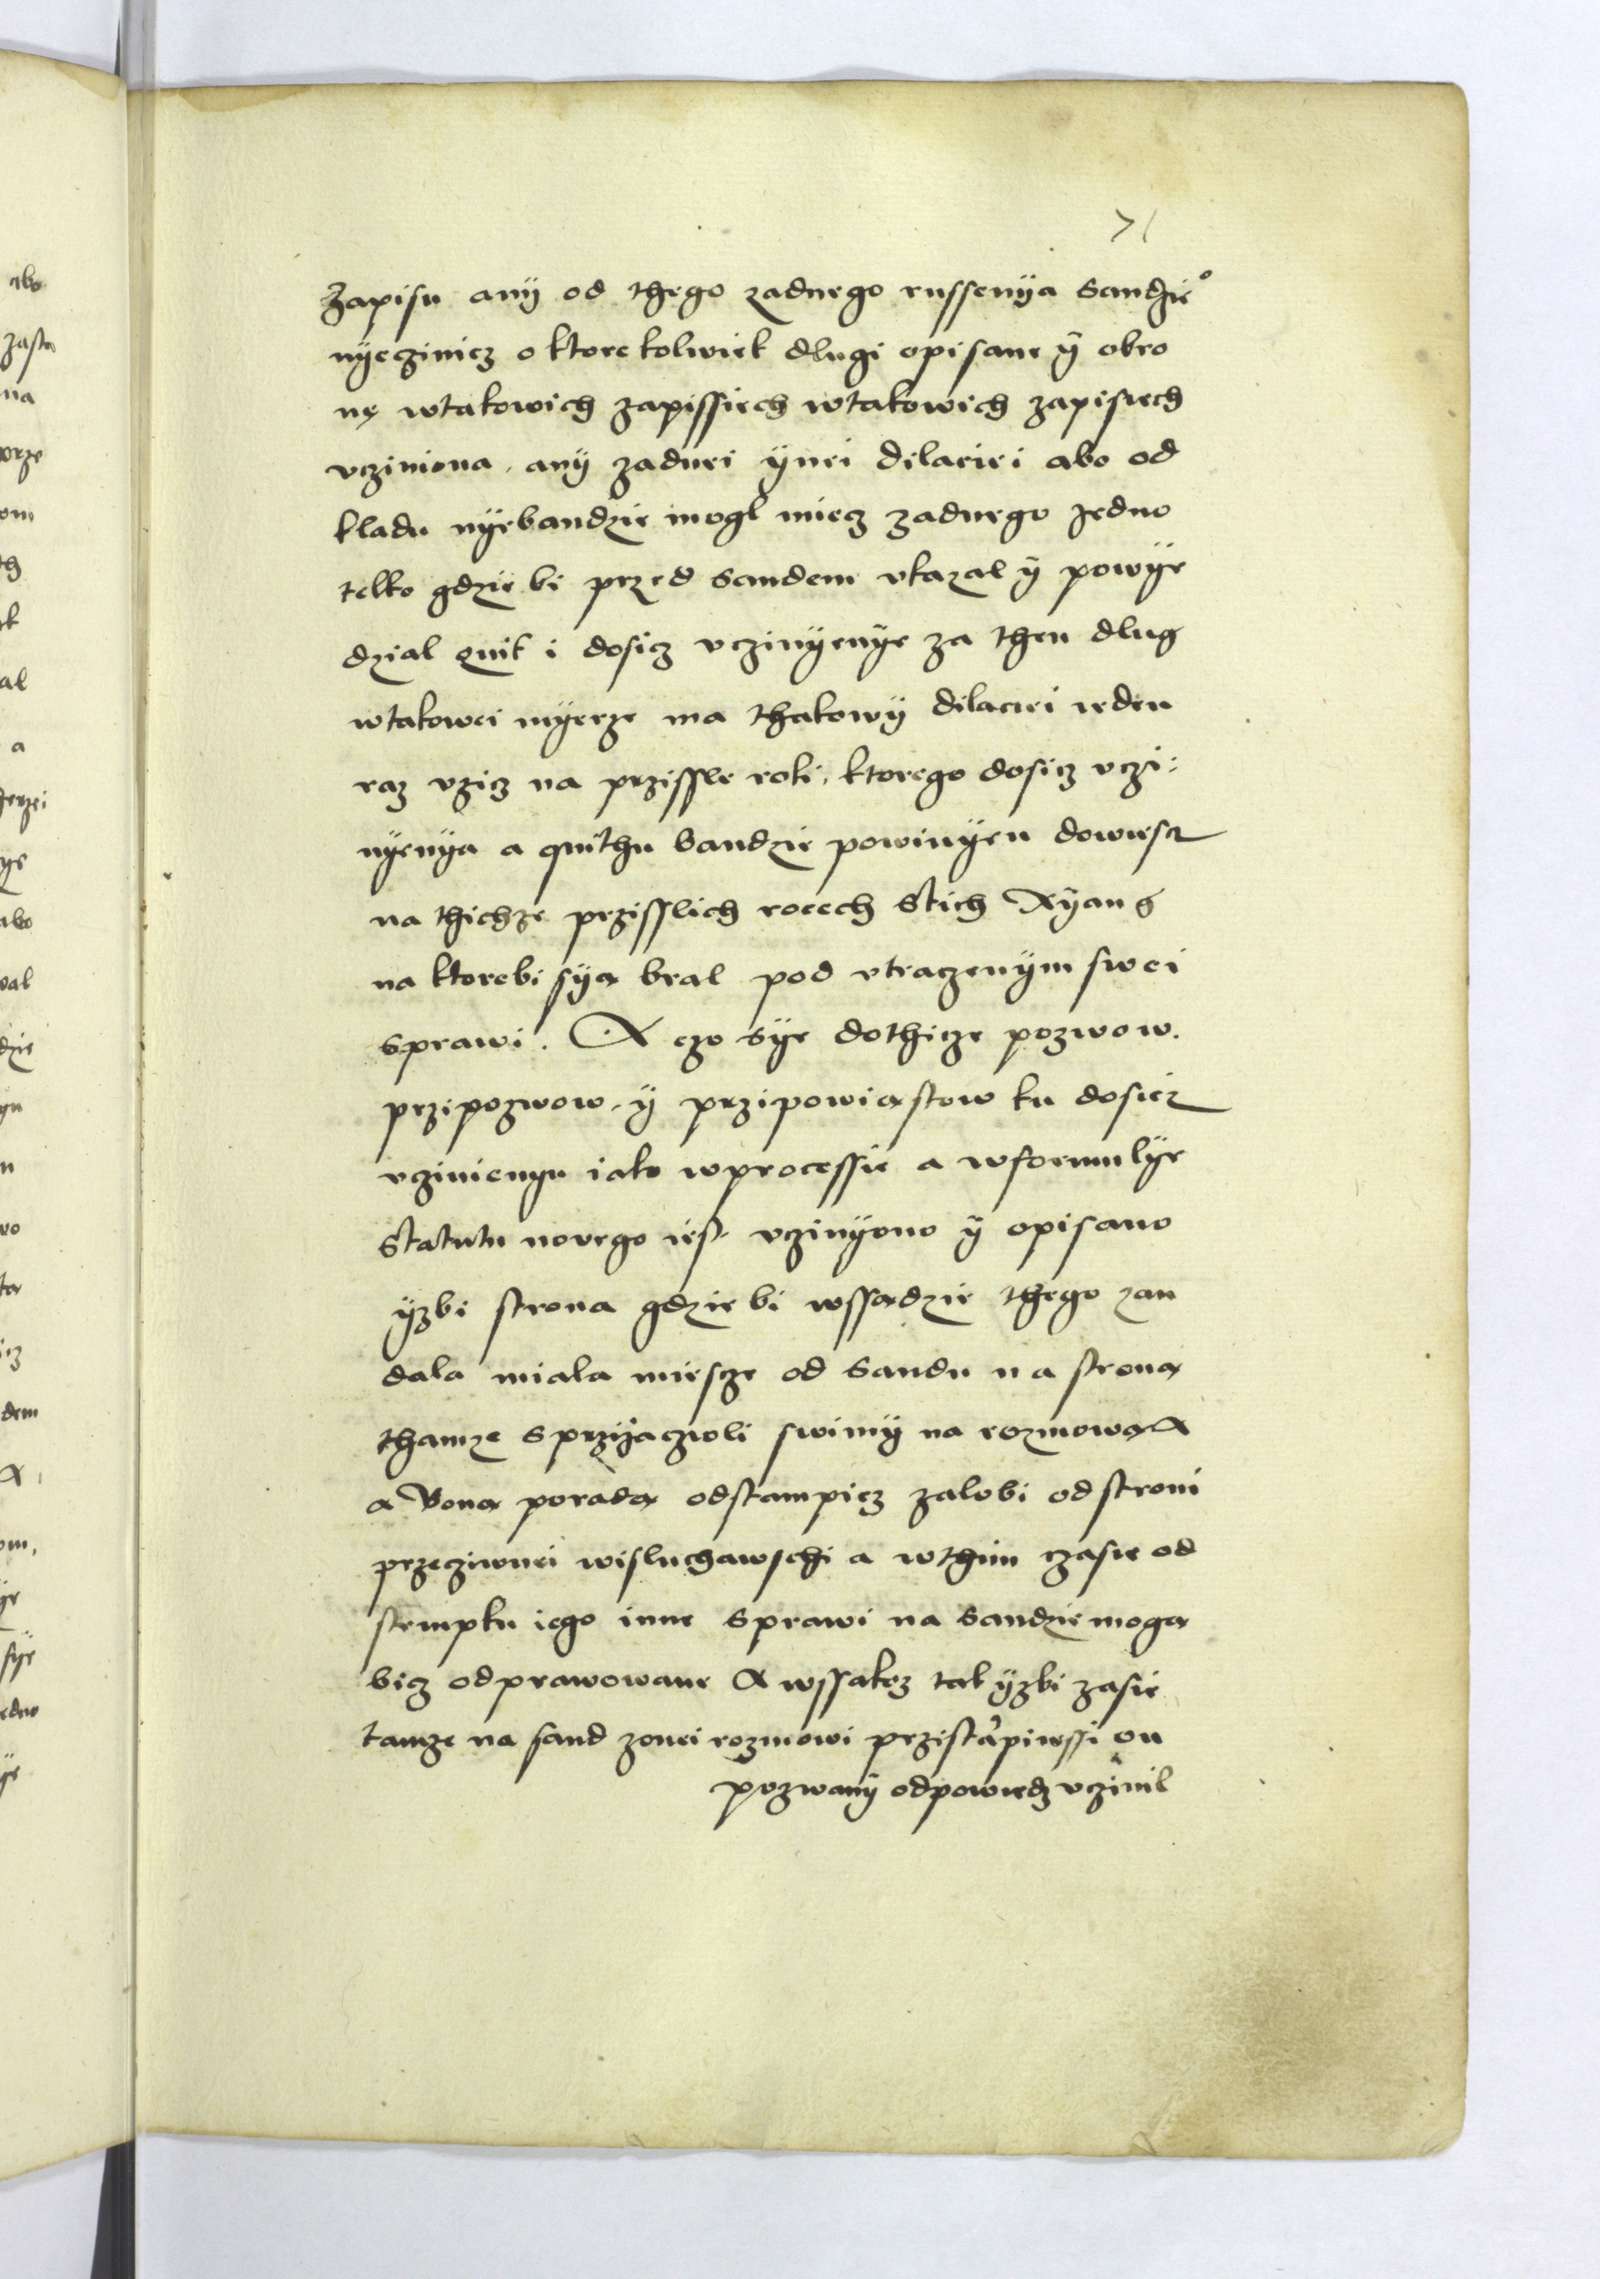 71
zapisu any od thego zadnego russenya sandzie°
nyeczinicz o ktorekolwiek dlugi opisane ÿ obro
nę wtakowich zapissiech wtakowich zapisiech
vcziniona, anÿ zadnei ÿnei dilaciei abo od
kladu nÿebandzie mogl miecz zadnego Jedno
telko gdzie bi przed sandem vkazal ÿ powÿe
dzial quit i dosicz vczinÿenÿe za then dlug
wtakowei mÿerze ma thakowÿ dilaciei ieden
raz vzicz na przissle roki, ktorego dosicz vczi:
nÿenÿa a quithu bandzie powinÿen dowiescz
na thichze przisslich rocech Stich Xÿang
na ktorebi sÿa bral pod vtraczenÿm swei
sprawi. A czo sÿe dothicze pozwow.
przipozwow, ÿ przipowiastow ku dosicz
vcziniengu iako wprocessie a wformulÿe
Statutu novego iest vczinÿono ÿ opisano
ÿzbi strona gdzie bi wssadzie thego zan
dala miala miescze od sandu na strona
thamze s przÿaczioli swimÿ na rozmowa
a Vona porada odstampicz zalobi od stroni
przecziwnei wisluchawschi a wthim czasie od
stempku iego inne sprawi na sandzie moga
bicz odprawowane A wssakoz tak ÿzbi zasie
tamze na sand zonei rozmowi przistąpiwssi on
pozwanÿ odpowiedz vczinil
abo
zasta
na
om
al
a
abo
val
dzie
dem
sÿe